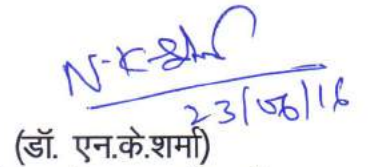 N-K-Sh
23/06/16
(डॉ. एन.के.शर्मा)